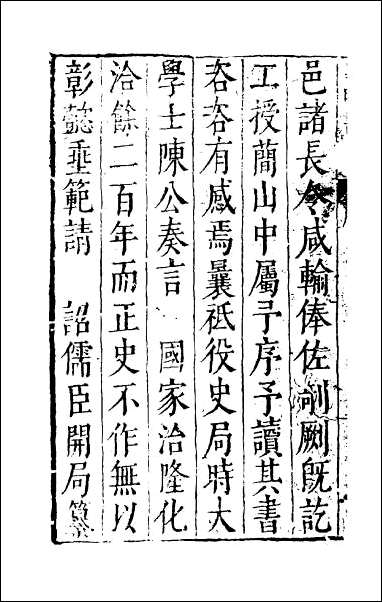 邑諸長令咸輸俸佐剞劂既訖
工授蕳山中屬予序予讀其書
峉峉有感焉曩祗役史局時大
學士陳公奏言　國家治隆化
洽餘二百年而正史不作無以
彰懿垂範請　詔儒臣開局纂